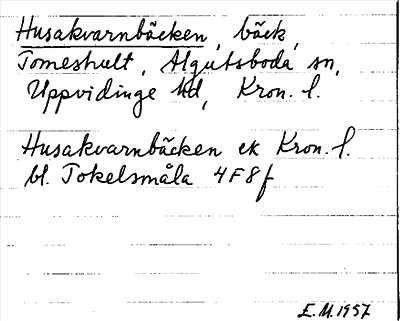 Husakvarnbäcken, bäck,
Tomeshult, Algutsboda sn,
Uppvidinge hd, Kron. l.
Husakvarnbäcken ek Kron. l.
bl. Tokelsmåla 4F8f
E.M. 1957